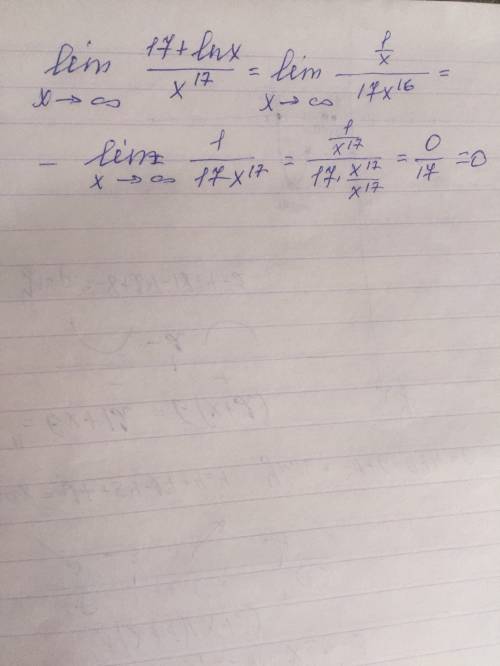 lim x→∞ (17 + ln x) / x^17 = lim x→∞ (1/x) / (17x^16) =
– lim x→∞ 1 / (17x^17) = (1/x^17) / (17 · x^17/x^17) = 0/17 = 0